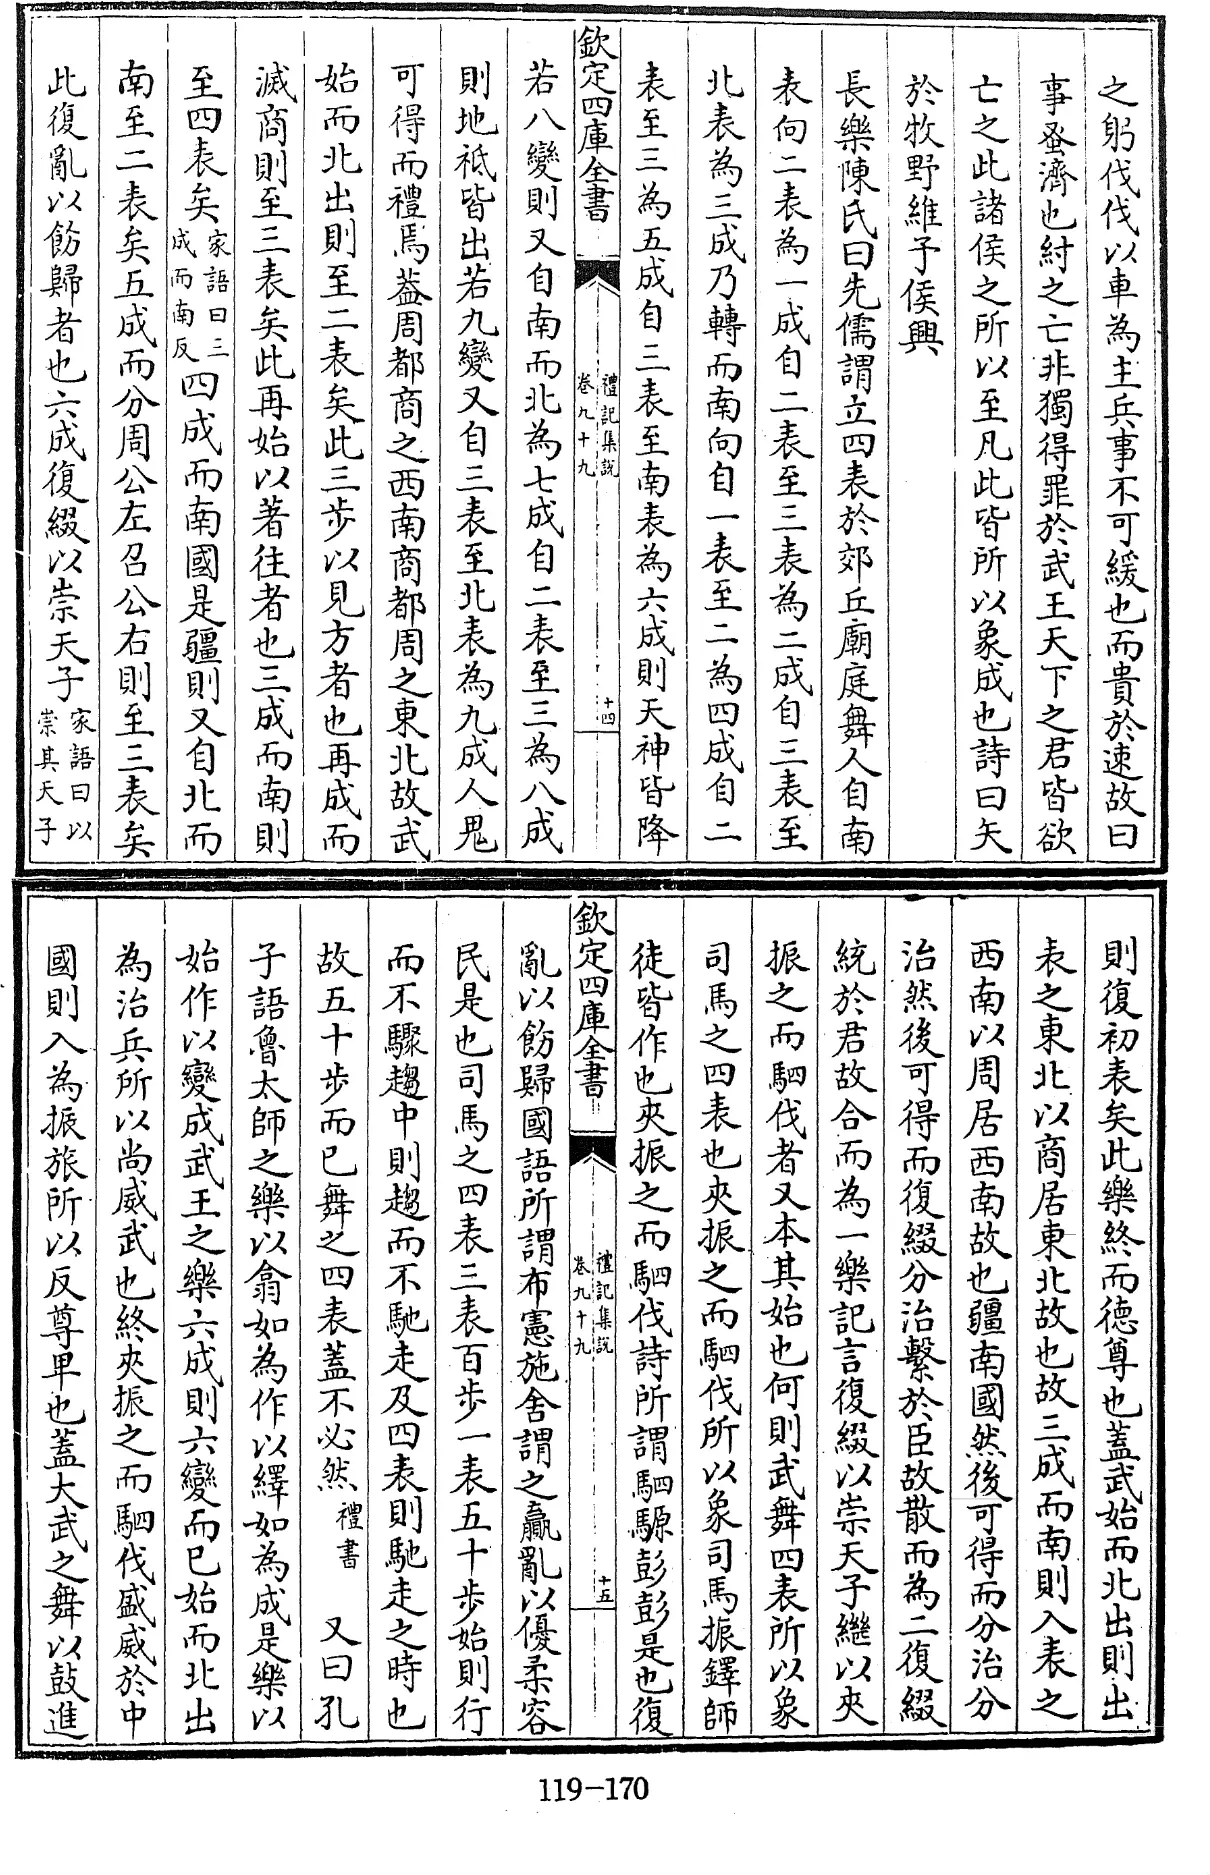 之躬伐伐以車為主兵事不可緩也而貴於速故曰
事蚤濟也紂之亡非獨得罪於武王天下之君皆欲
亡之此諸侯之所以至凡此皆所以象成也詩曰矢
於牧野維予侯興
長樂陳氏曰先儒謂立四表於郊丘廟庭舞人自南
表向二表為一成自二表至三表為二成自三表至
北表為三成乃轉而南向自一表至二為四成自二
表至三為五成自三表至南表為六成則天神皆降
欽定四庫全書
禮記集說
卷九十九
十四
若八變則又自南而北為七成自二表至三為八成
則地祇皆出若九變又自三表至北表為九成人鬼
可得而禮焉蓋周都商之西南商都周之東北故武
始而北出則至二表矣此三步以見方者也再成而
滅商則至三表矣此再始以著往者也三成而南則
至四表矣家語曰三成而南反四成而南國是疆則又自北而
南至二表矣五成而分周公左召公右則至三表矣
此復亂以飭歸者也六成復綴以崇天子家語曰以崇其天子
則復初表矣此樂終而德尊也蓋武始而北出則出
表之東北以商居東北故也故三成而南則入表之
西南以周居西南故也疆南國然後可得而分治分
治然後可得而復綴分治繫於臣故散而為二復綴
統於君故合而為一樂記言復綴以崇天子繼以夾
振之而駟伐者又本其始也何則武舞四表所以象
司馬之四表也夾振之而駟伐所以象司馬振鐸師
徒皆作也夾振之而駟伐詩所謂駟騵彭彭是也復
欽定四庫全書
禮記集說
卷九十九
十五
亂以飭歸國語所謂布憲施舍謂之羸亂以優柔容
民是也司馬之四表三表百步一表五十步始則行
而不驟趨中則趨而不馳走及四表則馳走之時也
故五十步而已舞之四表蓋不必然禮書 又曰孔
子語魯太師之樂以翕如為作以繹如為成是樂以
始作以變成武王之樂六成則六變而已始而北出
為治兵所以尚威武也終夾振之而駟伐盛威於中
國則入為振旅所以反尊卑也蓋大武之舞以鼓進
119-170